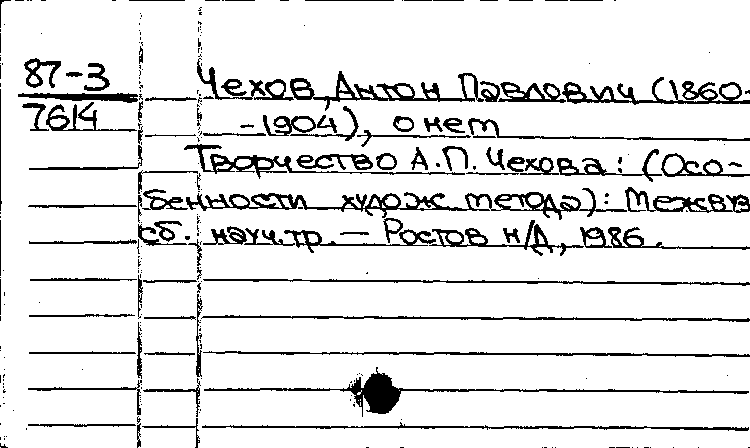 87-3
7614
Чехов, Антон Павлович (1860-
-1904), о нет
Творчество А.П. Чехова: (Осо-
бенности худож. метода): Межвуз
сб. науч. тр. — Ростов н/Д, 1986.